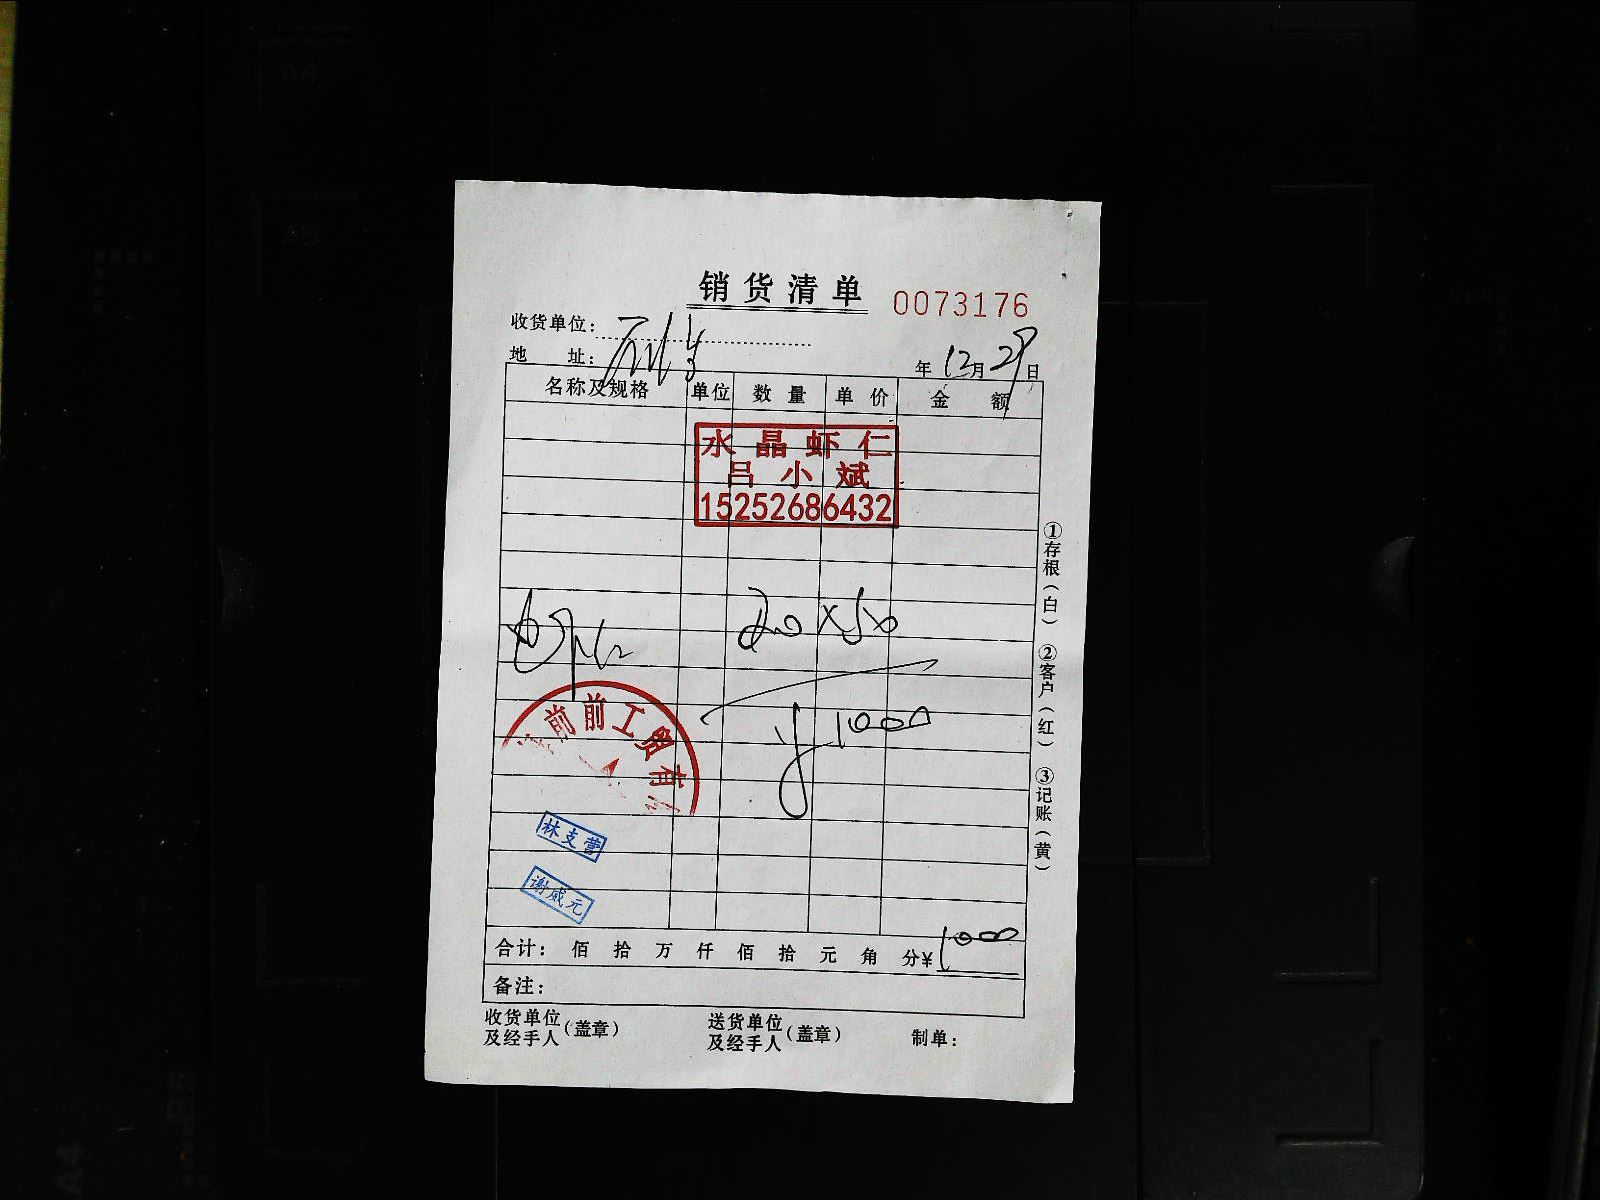 销货清单 0073176
收货单位:
地 址: 年 12月 29日
名称及规格 单位 数量 单价 金额
水晶虾仁
吕小斌
15252686432
虾仁 20×50
¥1000
前前工贸有
林支营
谢威元
合计: 佰 拾 万 仟 佰 拾 元 角 分¥ 1000
备注:
收货单位及经手人(盖章) 送货单位及经手人(盖章) 制单:
①存根(白) ②客户(红) ③记账(黄)
A4
A5
A4